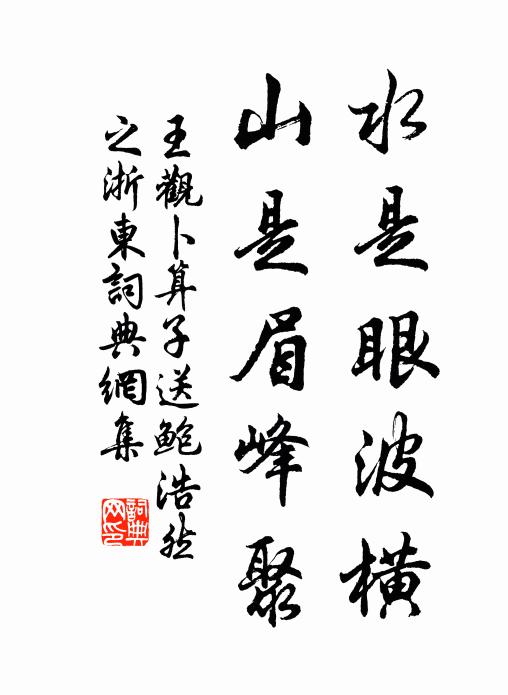 水是眼波横
山是眉峰聚
王觀卜算子送鲍浩然
之浙東詞典網集
詞典
网印